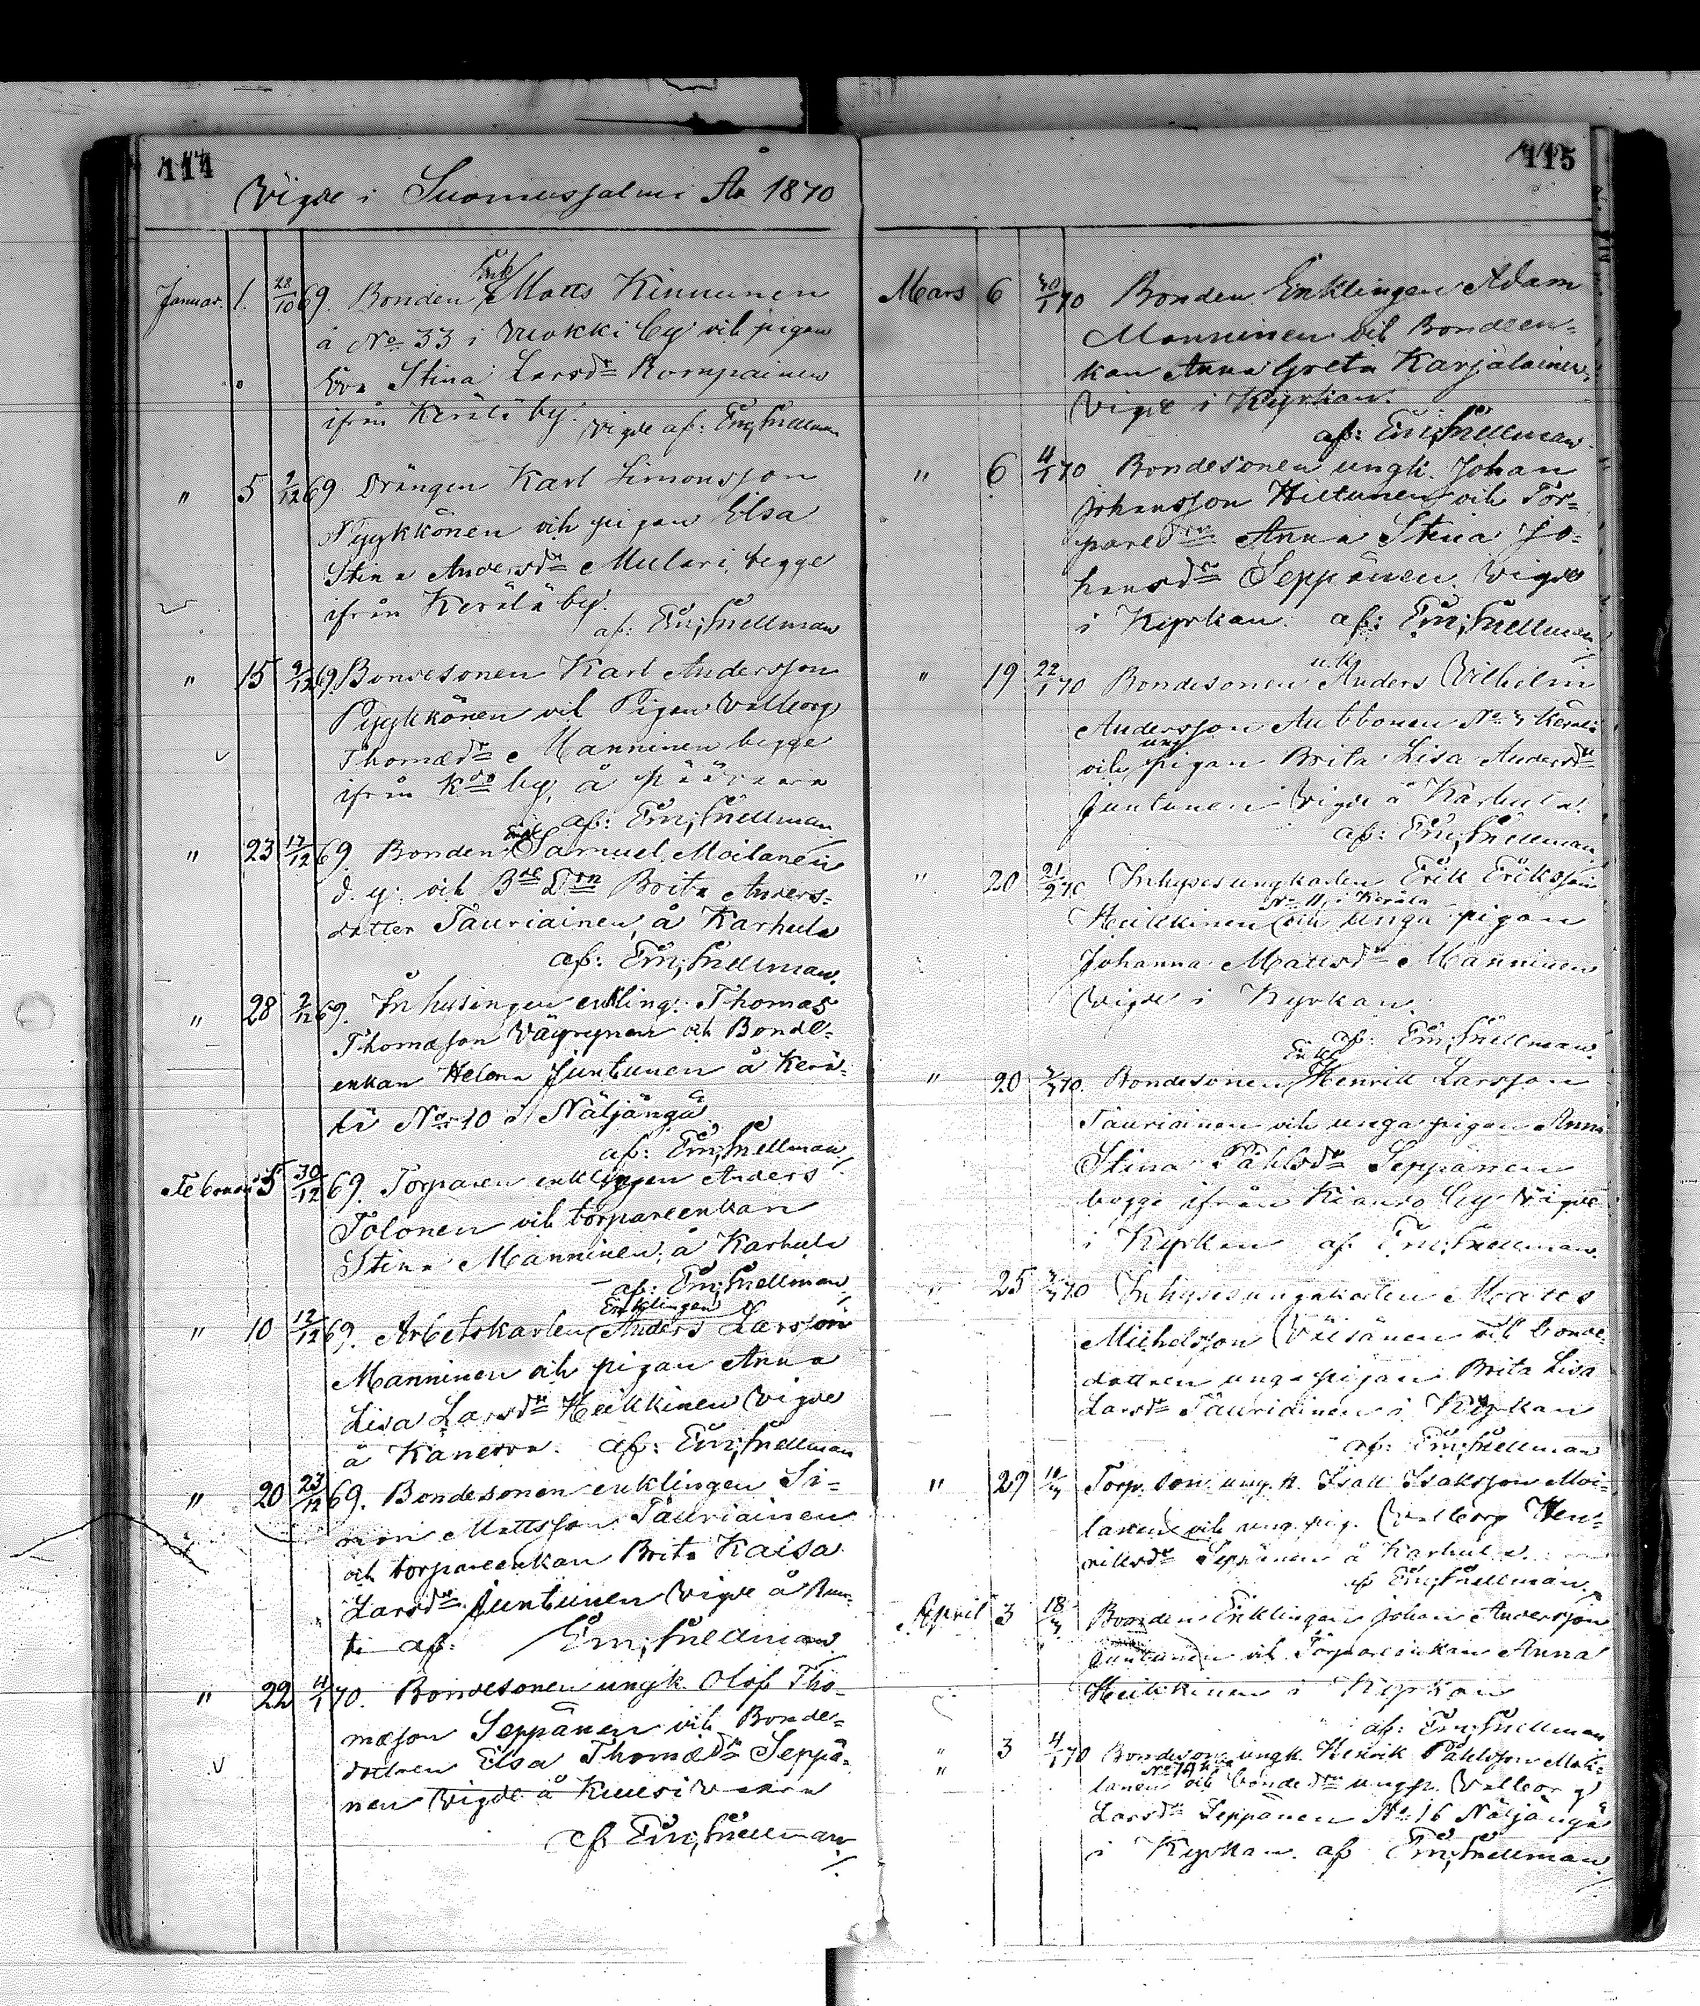 114
Vigde i Suomussalmi År 1870
Januar. 1. 28/10 69. Bonden Enkl. Matts Kinnunen
å No 33 i Vuokki by och pigan
Eva Stina Larsdr Kompainen
ifrån Kerälä by. Vigde af: Em; Snellman
" 5 9/12 69 Drängen Karl Simonsson
Pyykkönen och pigan Elsa
Stina Andersdr Mulari begge
ifrån Kerälä by.
af: Em; Snellman
" 15 9/12 69 Bondesonen Karl Andersson
Pyykkönen och Pigan Valborg
Thomædr Manninen begge
ifrån Kdo by, å
af: Em; Snellman
" 23 17/12 69. Bonden Enkl Samuel Moilanen
d. y. och Bde Drn Brita Anders-
dotter Tauriainen, å Karhula
af: Em; Snellman.
" 28 2/12 69. Inhysingen enkling. Thomas
Thomæson Väyrynen och Bonde-
enkan Helena Juntunen å Kerä-
lä No 10 i Näljängä
af: Em; Snellman
Februari 5 30/12 69. Torparen enklingen Anders
Tolonen och torpareenkan
Stina Manninen, å Karhula
af: Em; Snellman
" 10 12/12 69. Arbetskarlen Enklingen Anders Larsson
Manninen och pigan Anna
Lisa Larsdr Heikkinen Vigde
å Kanerva. af: Em; Snellman
" 20 23/12 69. Bondesonen enklingen Si-
mon Mattsson Tauriainen
och torpareenkan Brita Kaisa
Larsdr Juntunen Vigde å
af: Em; Snellman
" 22 11/1 70. Bondesonen ungk. Olof Tho-
mæson Seppänen och Bonde-
dottren Elsa Thomædr Seppä-
nen Vigde å Kuusivaara
af Em; Snellman
115
Mars 6 30/1 70 Bonden Enklingen Adam
Manninen och Bondeen-
kan Anna Greta Karjalainen,
Vigde i Kyrkan.
af: Em; Snellman
" 6 11/1 70 Bondesonen ungk. Johan
Johansson Hiltunen och Tor-
paredrn Anna Stina Jo-
hansdr Seppänen. Vigde
i Kyrkan. af: Em; Snellman
" 19 22/1 70 Bondesonen u.k. Anders Vilhelm
Andersson No 4
och unga pigan Brita Lisa Andersdr
Juntunen Vigde å Karhula.
af: Em; Snellman
" 20 21/2 70 Inhysesungkarlen Erik Eriksson
No 11, i Kerälä
Heikkinen och unga pigan
Johanna Mattsdr Manninen
Vigde i Kyrkan.
af: Em; Snellman.
" 20 70. Bondesonen Enkl. Henrik Larsson
Tauriainen och unga pigan Anna
Stina Påhlsdr Seppänen
begge ifrån Kianro by Vigde
i Kyrkan af Em; Snellman.
" 25 70 Inhysesungkarlen Matts
Michelsson Väisänen och bonde-
dottren unga pigan Brita Lisa
Larsdr Tauriainen i Kyrkan
af: Em; Snellman
" 29 Torp. son. ung. k. Isak Isaksson Moi-
lanen och ung. pig. Valborg Hen-
riksdr Seppänen å Karhula.
af Em; Snellman.
April 3 Bonden Enklingen Johan Andersson
Juntunen och Torpareenkan Anna
Heikkinen i Kyrkan
af: Em; Snellman
" 3 70 Bondeson. ungk. Henrik Påhlsson Moi-
lanen och bondedrn ungp. Valborg
Larsdr Seppänen No 16 Näljängä
i Kyrkan. af Em; Snellman.